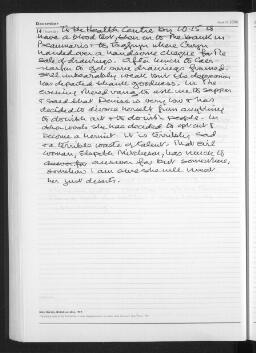 December
14
To the Health Centre by 10-15 to
have a blood test, then on to the bank in
& to where Gwyn
handed over a handsome cheque for the
sale of drawings. After lunch to
to get some drawings framed.
Feel unbearably weak but the depression
has departed thank goodness. In the
evening rang to ask me to supper
& said that Denise is very low & has
decided to divorce herself from anything
to do with art & to do with people. In
other words she has decided to opt out &
become a hermit. It is terribly sad
& a terrible waste of talent. That evil
woman, Nicholson, has much to
answer for but somewhere,
somehow I am sure she will meet
her just deserts.